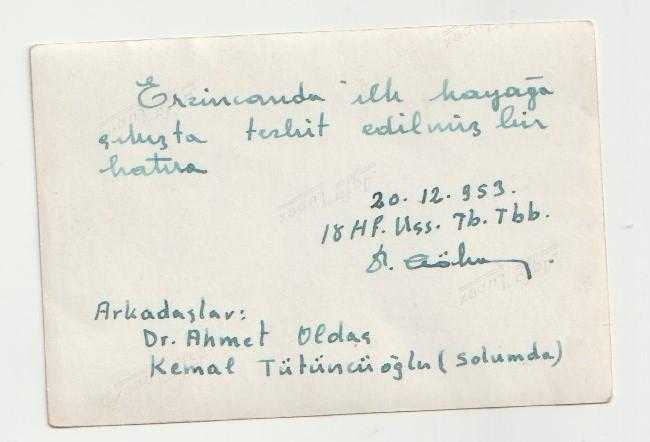 Erzincanda ilk kayağa
çıkışta tesbit edilmiş bir
hatıra
20.12.953.
18 HP. Uçs. Tb. Tbb.
Arkadaşlar:
Dr. Ahmet Oldaç
Kemal Tütüncüoğlu (Solumda)